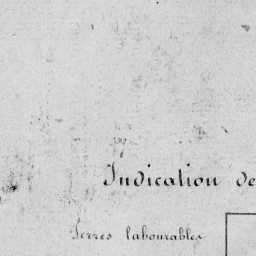 Indication de
Terres labourables